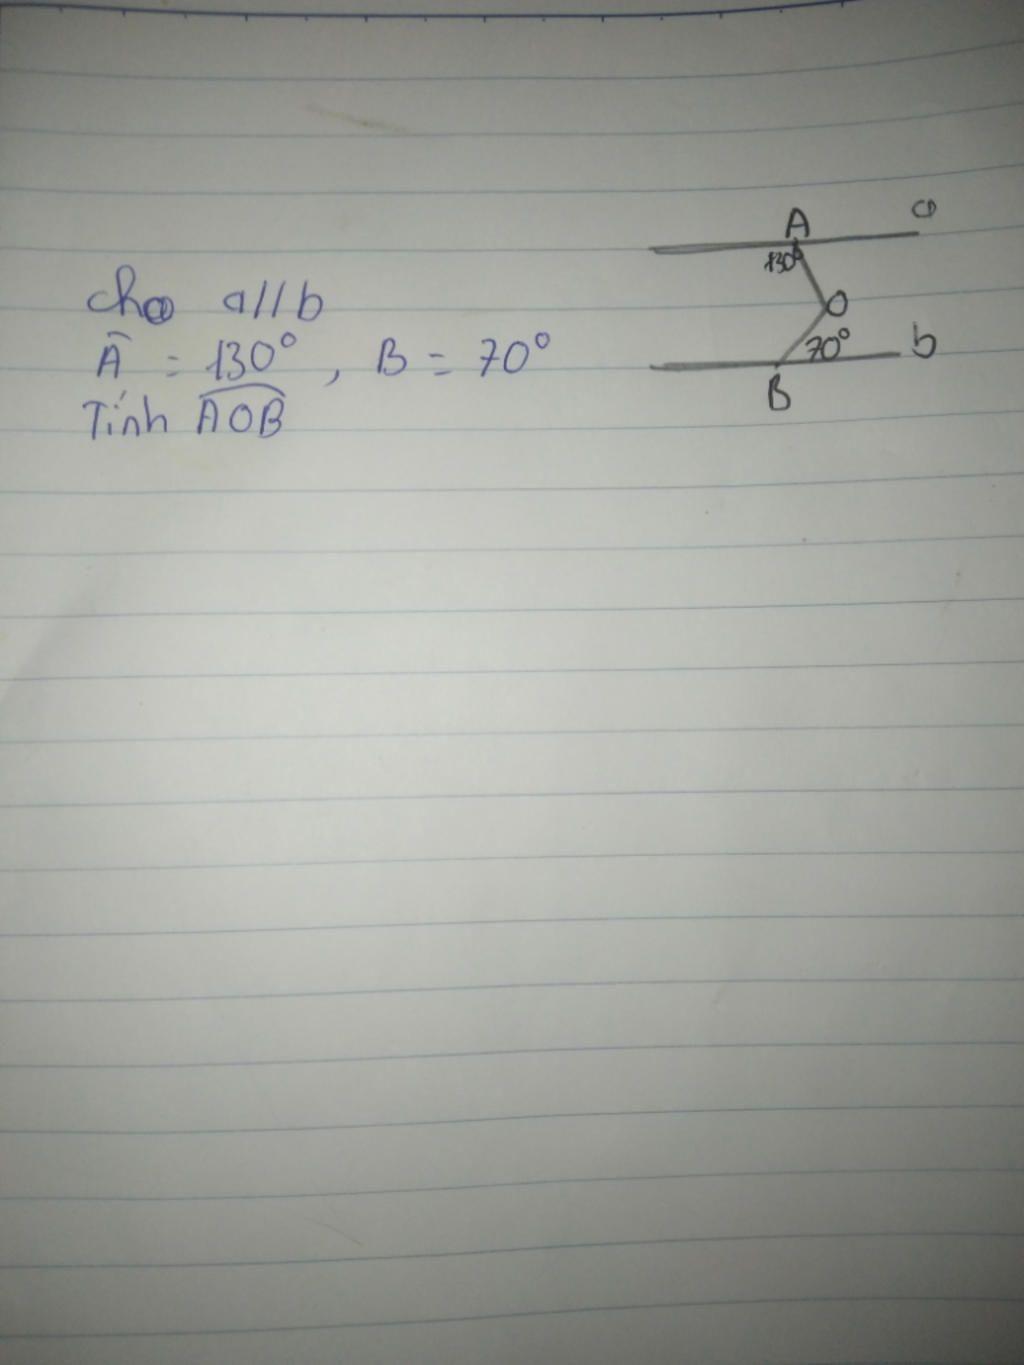 Cho a//b
Â = 130°, B = 70°
Tính AOB
A
a
130°
O
70°
b
B